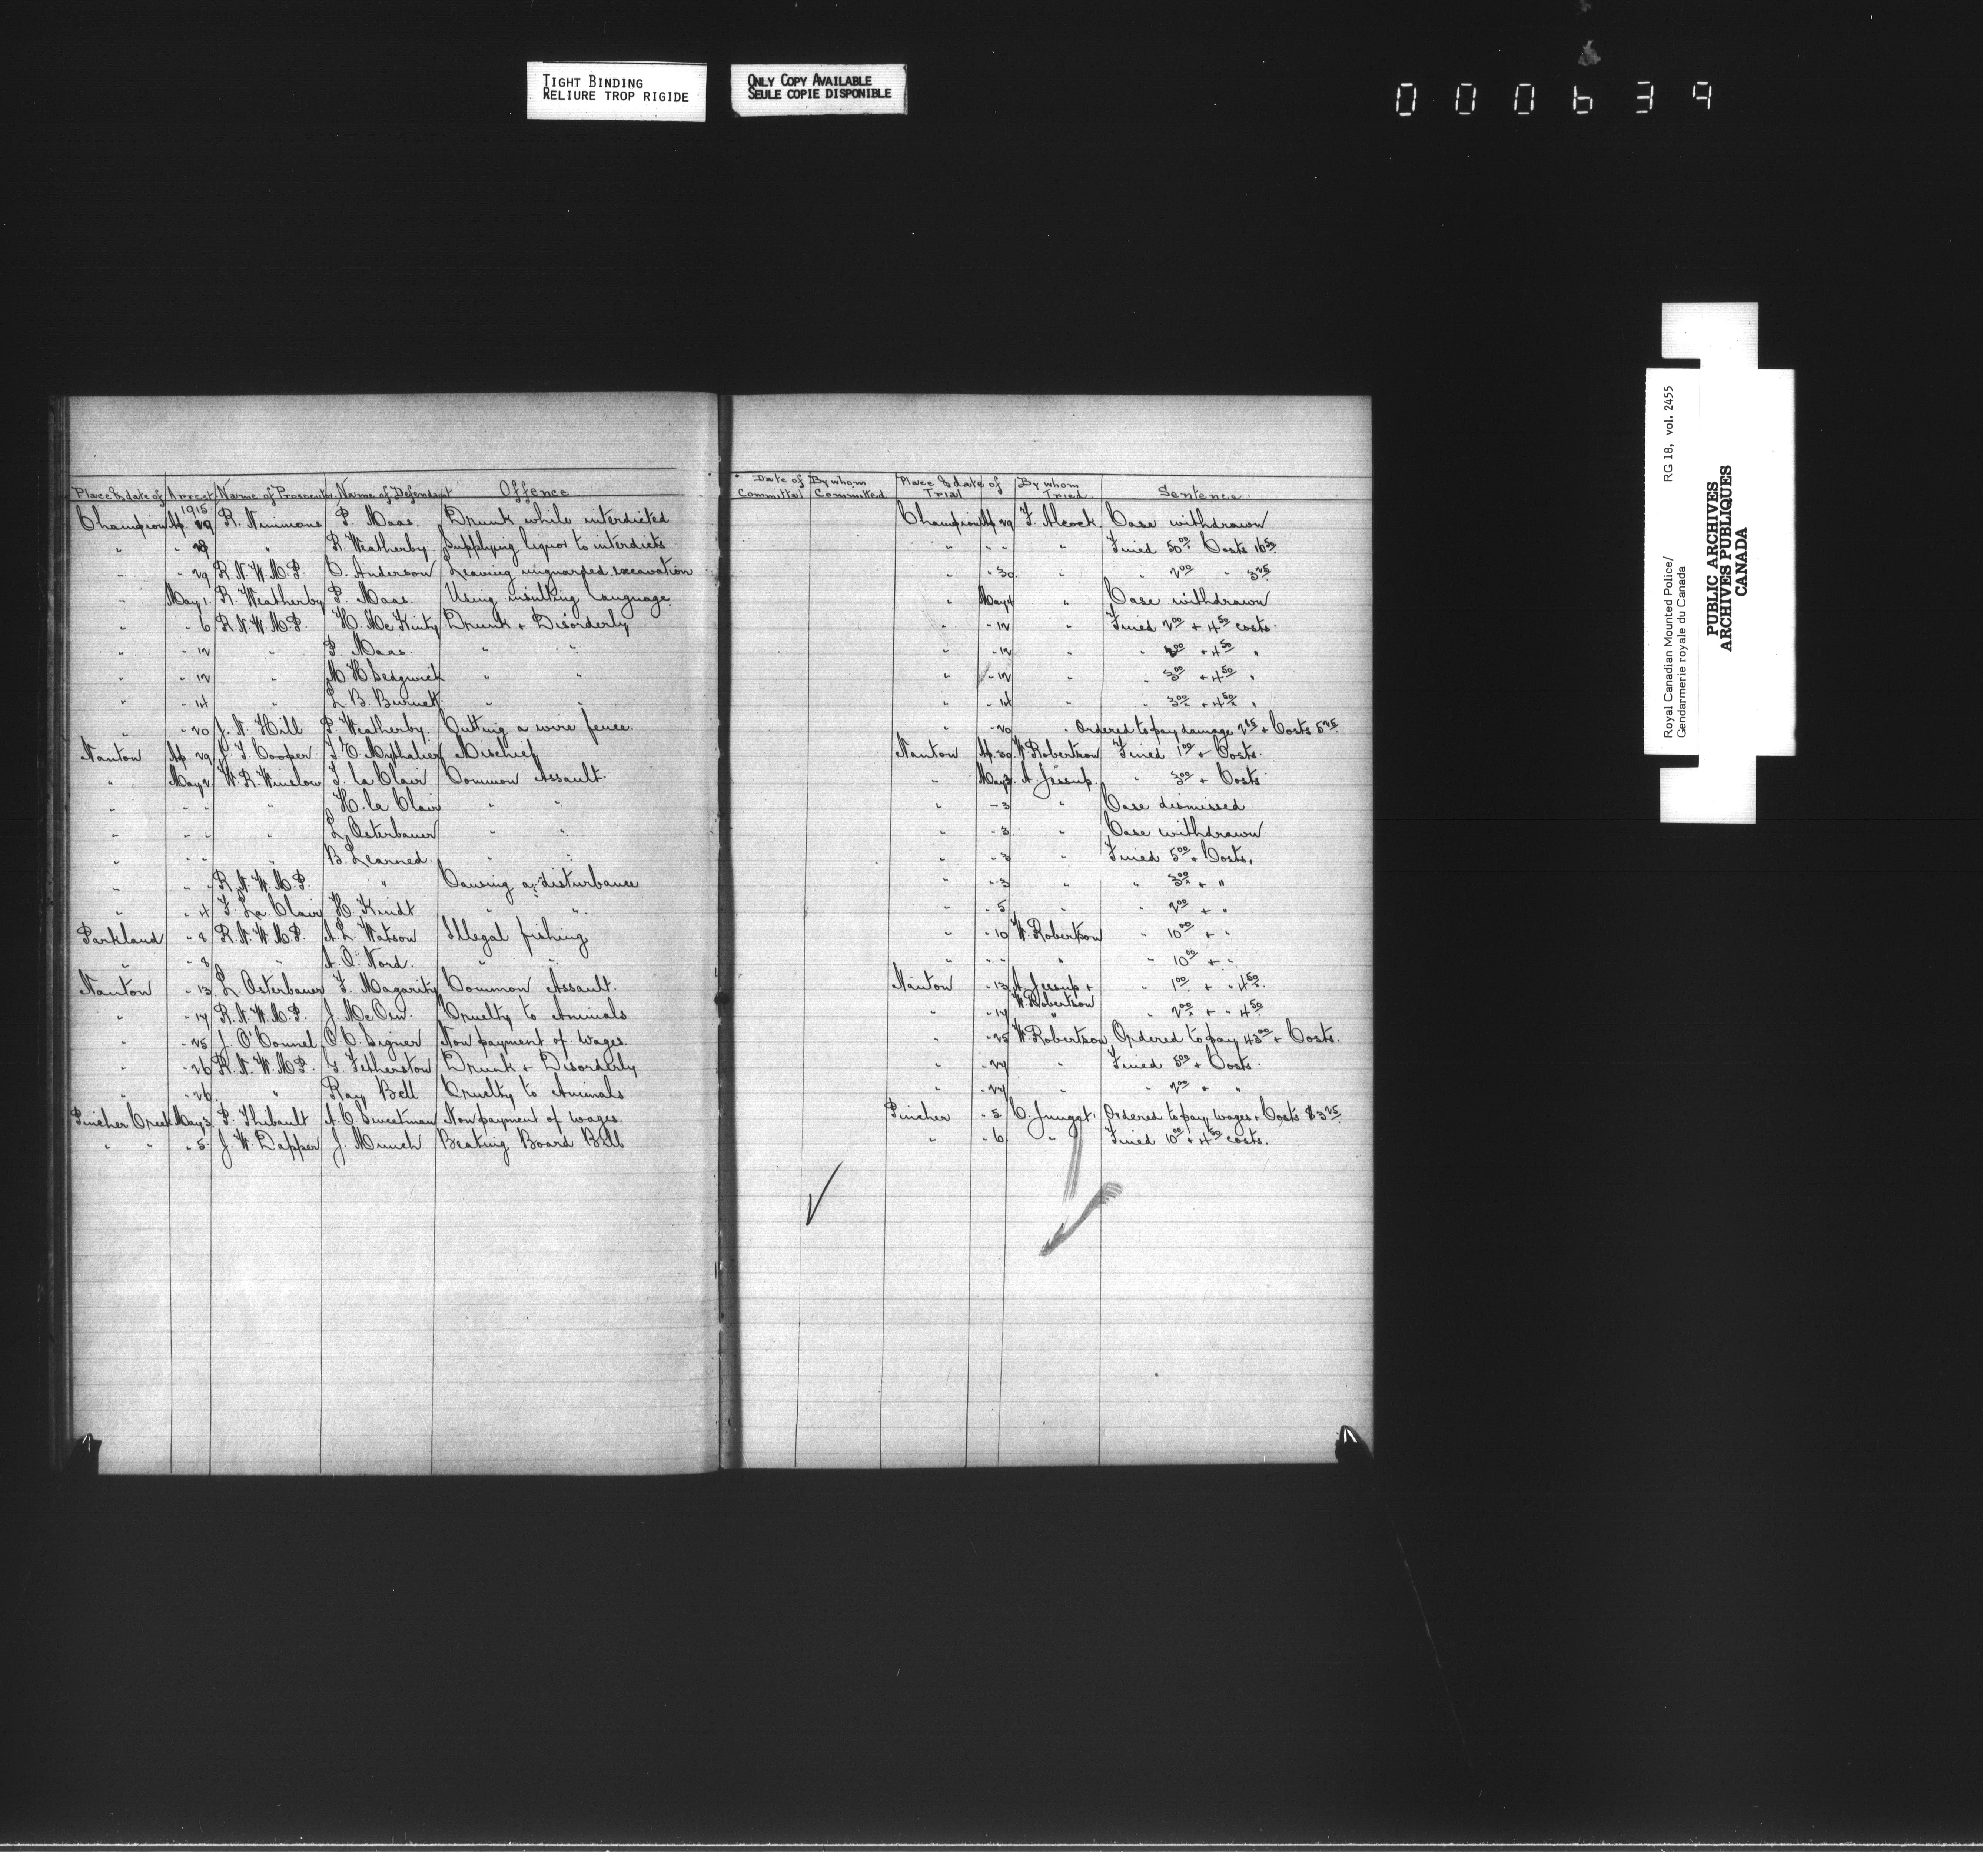 TIGHT BINDING
RELIURE TROP RIGIDE
ONLY COPY AVAILABLE
SEULE COPIE DISPONIBLE
000639
Place & date of Arrest Name of Prosecutor Name of Defendant Offence Date of Committal By whom Committed Place & date of Trial By whom Tried Sentence
1915
Champion Ap. 29 R. Nimmons P. Maas Drunk while interdicted Champion Ap 29 F. Alcock Case withdrawn
" " " R. Weatherby Supplying liquor to interdicts " " " " Fined 50.00 Costs 16.50
" " 29 R.N.W.M.P. C. Anderson Leaving unguarded excavation " " 30 " " 2.00 " 3.25
" May 1 R. Weatherby P. Maas Using insulting language " May 4 " Case withdrawn
" " 6 R.N.W.M.P. H. McKinty Drunk + Disorderly " " 12 " Fined 2.00 + 4.50 costs
" " 12 " P. Maas " " " " 12 " " + 4.50 "
" " 12 " M. H. Sedgwick " " " " 12 " " 3.00 + 4.50 "
" " 14 " L. B. Burnett " " " " 14 " " 3.00 + 4.50 "
" " 20 J. N. Hill P. Weatherby Cutting a wire fence " " 20 " Ordered to pay damage + Costs 5.25
Nanton Ap. 29 J. F. Cooper Mischief Nanton Ap. 30 W. Robertson Fined 1.00 + Costs
" May 2 W. R. Winslow F. la Clair Common Assault " May 3 A. Jessup " 3.00 + Costs
" " " " H. la Clair " " " " 3 " Case dismissed
" " " " L. Osterbauer " " " " 3 " Case withdrawn
" " " " B. Learned " " " " 3 " Fined 5.00 + Costs
" " " R.N.W.M.P. " Causing a disturbance " " 3 " " 3.00 + "
" " 4 F. La Clair H. Kindt " " " " 5 " " 2.00 + "
Parkland " 8 R.N.W.M.P. A. L. Watson Illegal fishing " " 10 W. Robertson " 10.00 + "
" " 8 " A. O. Nord " " " " " " " 10.00 + "
Nanton " 13 L. Osterbauer F. Magarity Common Assault Nanton " 13 A. Jessup + W. Robertson " 1.00 + " 4.50
" " 17 R.N.W.M.P. J. McOrn Cruelty to Animals " " 17 " " 2.00 + " 4.50
" " 25 J. O'Connel C. C. Signer Non payment of wages " " 25 W. Robertson Ordered to pay 43.00 + Costs
" " 26 R.N.W.M.P. G. Fetherston Drunk + Disorderly " " 27 " Fined 5.00 + Costs
" " 26 " Ray Bell Cruelty to Animals " " 27 " " 2.00 + "
Pincher Creek May 3 P. Thibault A. C. Sweetman Non payment of wages Pincher " 5 C. Junget Ordered to pay wages + Costs $3.25
" " " 5 J. W. Dapper J. Munch Beating Board Bill " " 6 " Fined 10.00 + 4.50 costs
Royal Canadian Mounted Police/
Gendarmerie royale du Canada
RG 18, vol. 2455
PUBLIC ARCHIVES
ARCHIVES PUBLIQUES
CANADA